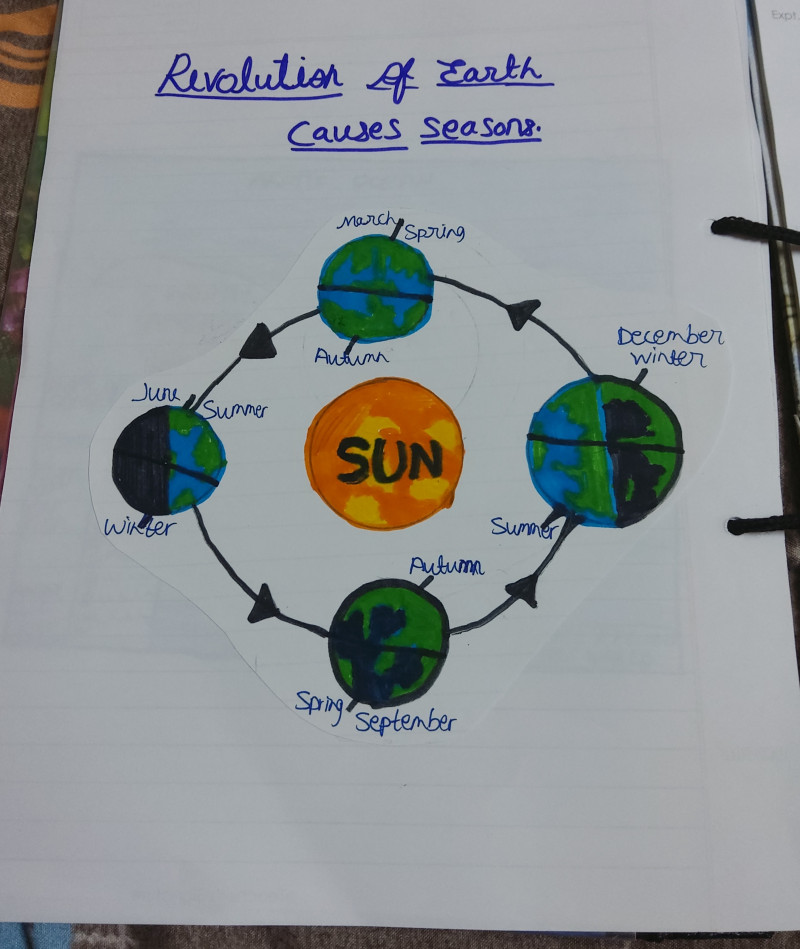 Revolution of Earth
Causes seasons.
March Spring
Autumn
December
winter
June Summer
SUN
Winter
Summer
Autumn
Spring September
Expt.